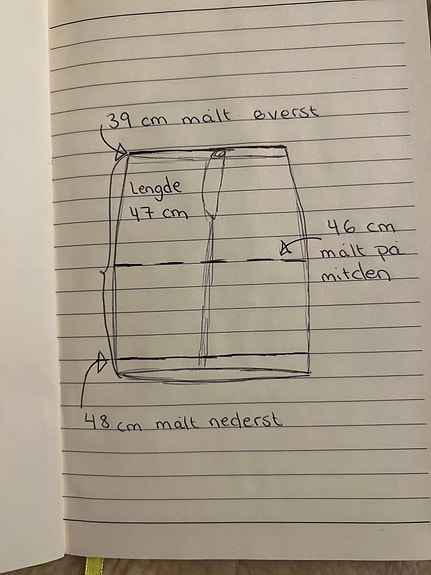 39 cm målt øverst
Lengde
47 cm
46 cm
målt på
mitden
48 cm målt nederst